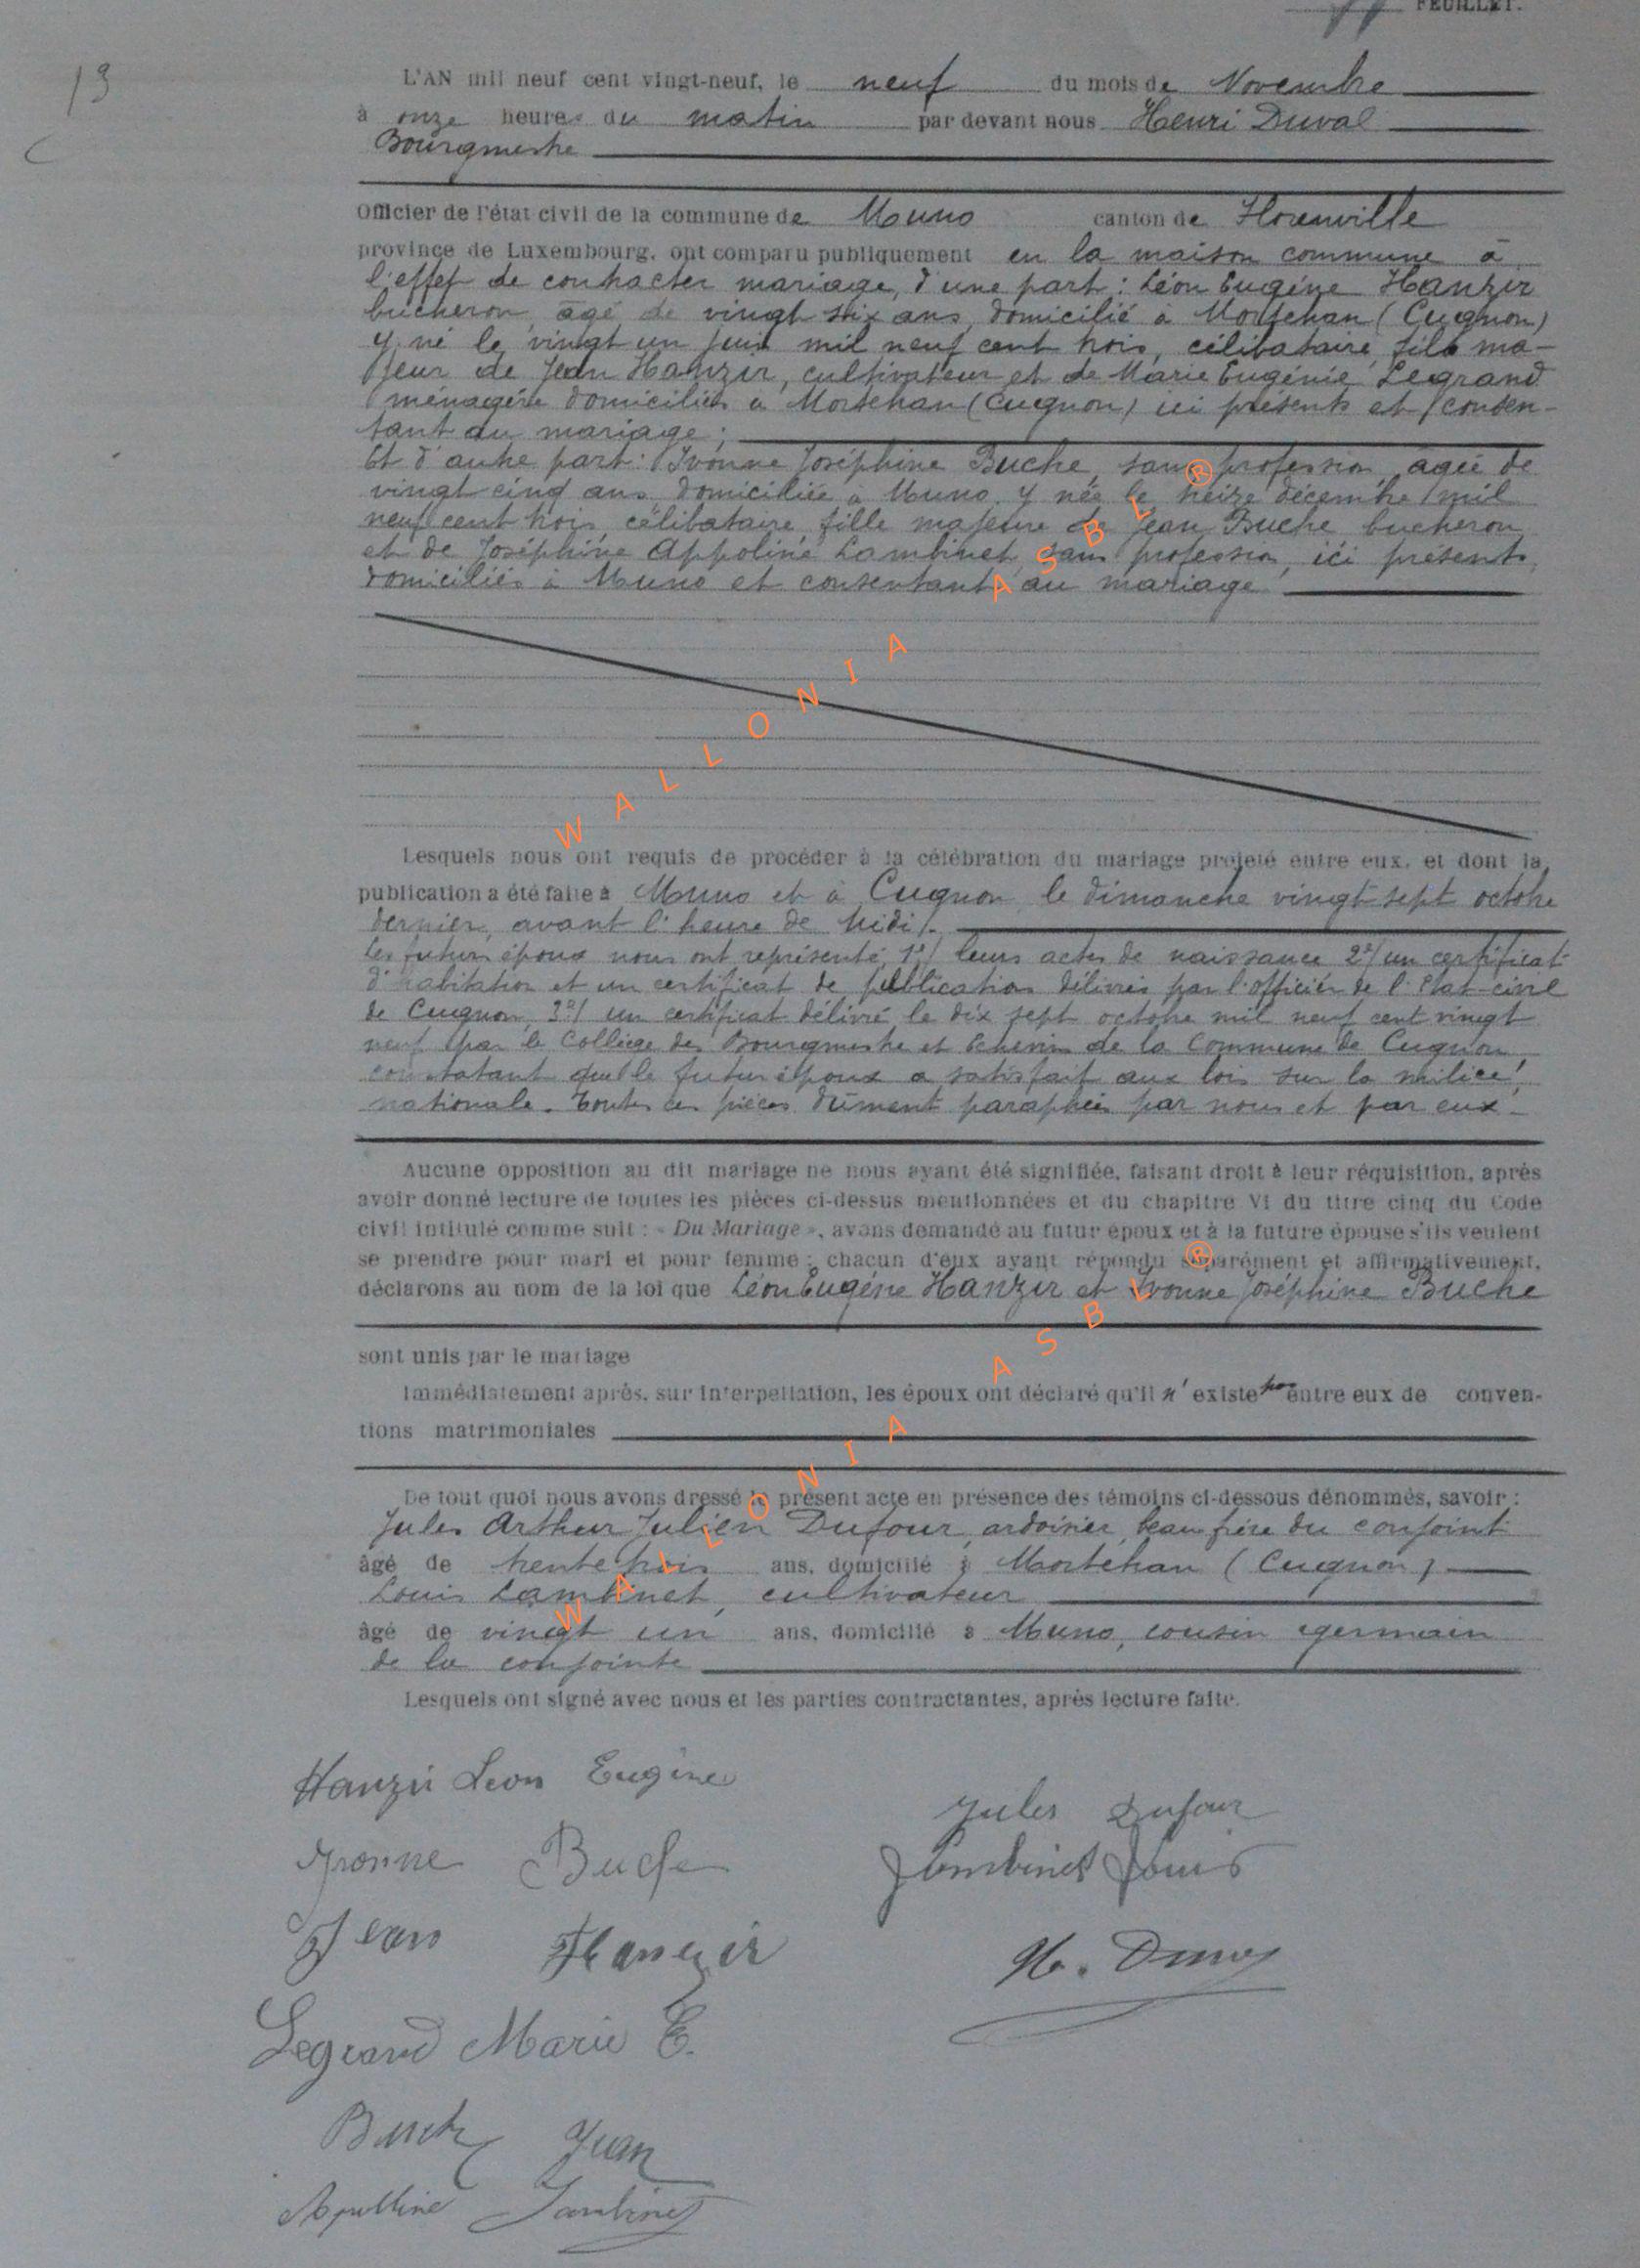 FEUILLET.
13
L'AN mil neuf cent vingt-neuf, le neuf du mois de Novembre
à onze heures du matin par devant nous Henri Duval
Bourgmestre
Officier de l'état civil de la commune de Muno canton de Florenville
province de Luxembourg, ont comparu publiquement en la maison commune à
l'effet de contracter mariage, d'une part : Léon Eugène Hanzir
bucheron, âgé de vingt six ans, domicilié à Mortehan (Cugnon)
y né le vingt un juin mil neuf cent trois, célibataire fils ma-
jeur de Jean Hanzir, cultivateur et de Marie Eugénie Legrand
ménagère domiciliés à Mortehan (Cugnon) ici présents et consen-
tant au mariage ;
Et d'autre part : Yvonne Joséphine Buche, sans profession, âgée de
vingt cinq ans domiciliée à Muno, y née le treize décembre mil
neuf cent trois, célibataire, fille majeure de Jean Buche bucheron
et de Joséphine Appoline Lambinet, sans profession, ici présents,
domiciliés à Muno et consentant au mariage
Lesquels nous ont requis de procéder à la célébration du mariage projeté entre eux, et dont la
publication a été faite à Muno et à Cugnon le dimanche vingt sept octobre
dernier, avant l'heure de Midi.
Les futurs époux nous ont représenté, 1°/ leurs actes de naissance 2°/ un certificat
d'habitation et un certificat de publication délivrés par l'officier de l'Etat-civil
de Cugnon, 3°/ un certificat délivré le dix sept octobre mil neuf cent vingt
neuf par le Collège des Bourgmestre et Echevins de la Commune de Cugnon,
constatant que le futur époux a satisfait aux lois sur la milice
nationale. Toutes ces pièces dûment paraphées par nous et par eux.
Aucune opposition au dit mariage ne nous ayant été signifiée, faisant droit à leur réquisition, après
avoir donné lecture de toutes les pièces ci-dessus mentionnées et du chapitre VI du titre cinq du Code
civil intitulé comme suit : « Du Mariage », avons demandé au futur époux et à la future épouse s'ils veulent
se prendre pour mari et pour femme ; chacun d'eux ayant répondu séparément et affirmativement,
déclarons au nom de la loi que Léon Eugène Hanzir et Yvonne Joséphine Buche
sont unis par le mariage
Immédiatement après, sur interpellation, les époux ont déclaré qu'il n'existe pas entre eux de conven-
tions matrimoniales
De tout quoi nous avons dressé le présent acte en présence des témoins ci-dessous dénommés, savoir :
Jules Arthur Julien Dufour, ardoisier, beau frère du conjoint
âgé de trente trois ans, domicilié à Mortehan (Cugnon)
Louis Lambinet, cultivateur
âgé de vingt un ans, domicilié à Muno, cousin germain
de la conjointe
Lesquels ont signé avec nous et les parties contractantes, après lecture faite.
Hanzir Leon Eugène
Jules Dufour
Yvonne Buche
Lambinet Louis
Jean Hanzir
H. Duval
Legrand Marie E.
Buche Jean
Apolline Lambinet
WALLONIA ASBL ®
WALLONIA ASBL ®